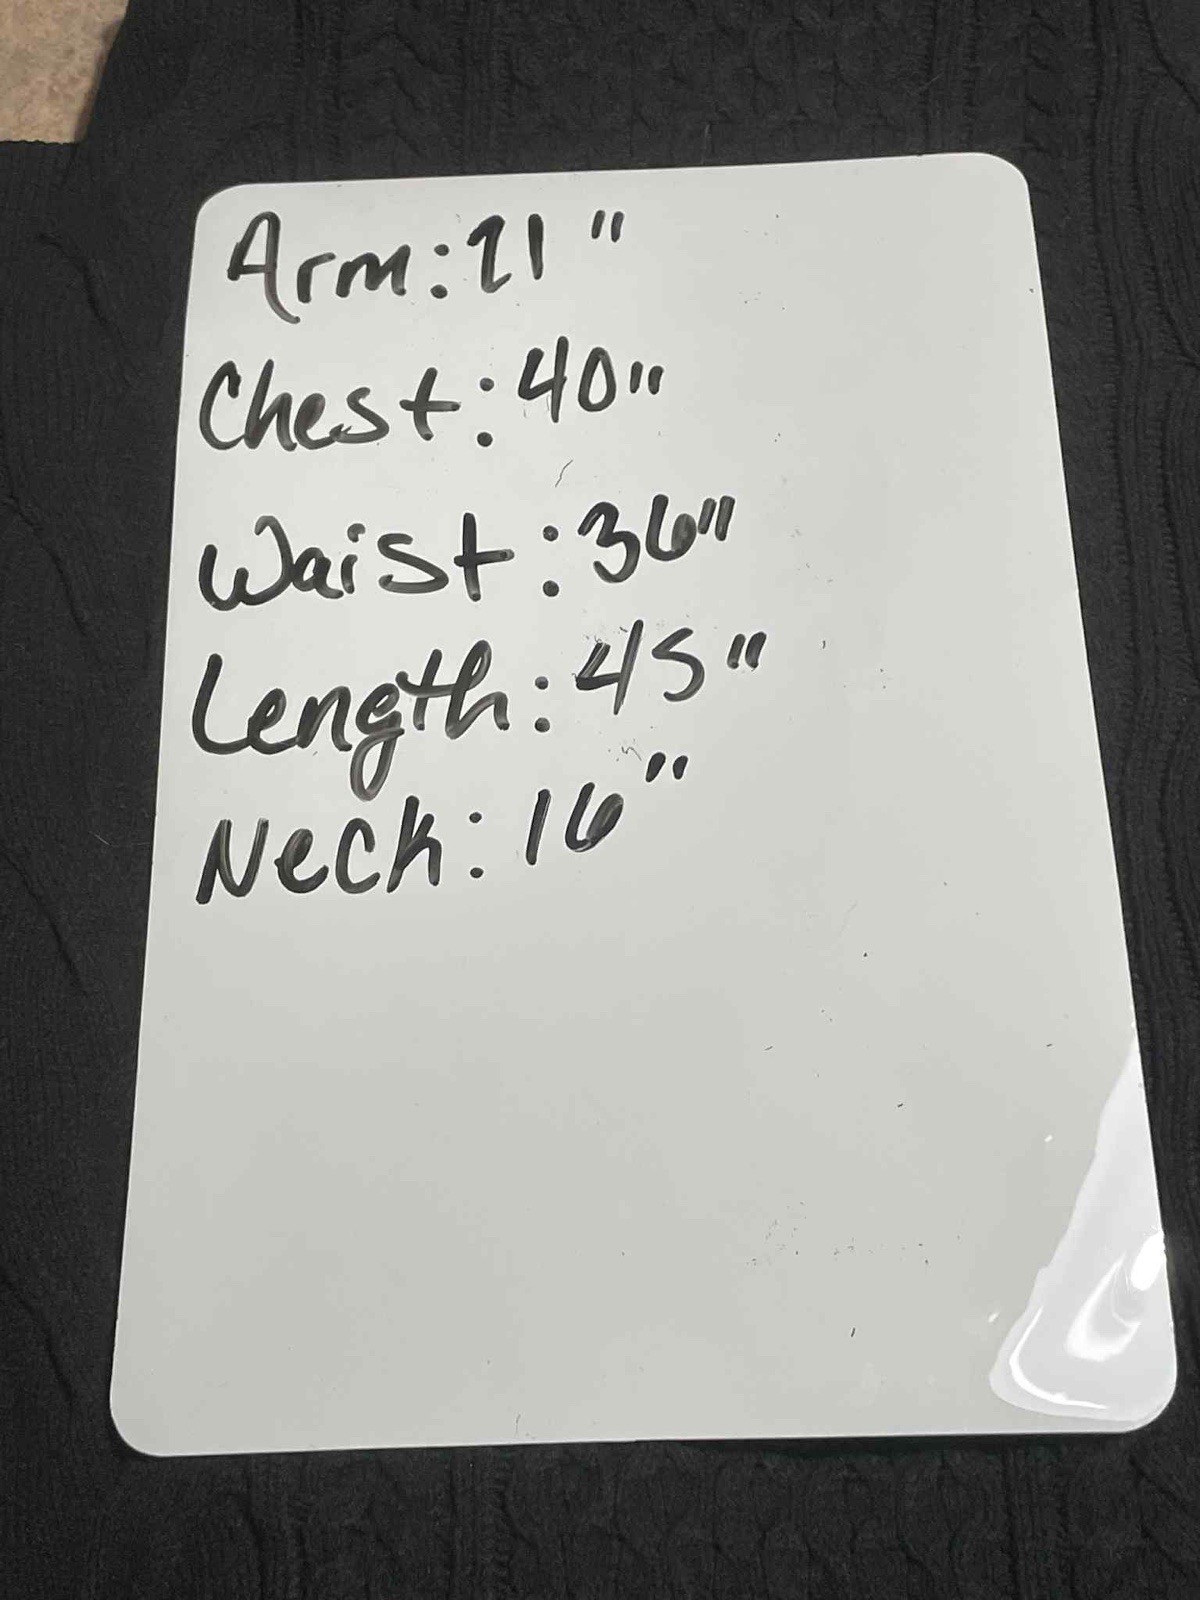 Arm: 21"
Chest: 40"
Waist: 36"
Length: 45"
Neck: 16"